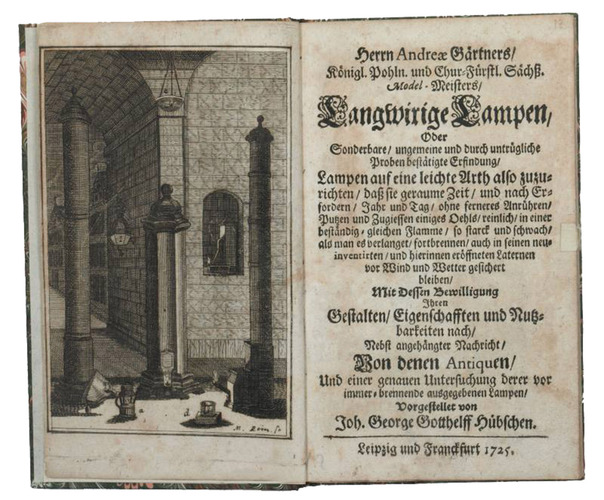 M. Zeim. sc.
Herrn Andreæ Gärtners/
Königl. Pohln. und Chur-Fürstl. Sächß.
Model-Meisters/
Langwirige Lampen,
Oder
Sonderbare/ ungemeine und durch untrügliche
Proben bestätigte Erfindung/
Lampen auf eine leichte Arth also zuzu-
richten/ daß sie geraume Zeit/ und nach Er-
fordern/ Jahr und Tag/ ohne ferneres Anrühren/
Putzen und Zugiessen einiges Oehls/ reinlich/ in einer
beständig-gleichen Flamme/ so starck und schwach/
als man es verlanget/ fortbrennen/ auch in seinen neu-
inventirten/ und hierinnen eröffneten Laternen
vor Wind und Wetter gesichert
bleiben/
Mit Dessen Bewilligung
Ihren
Gestalten/ Eigenschafften und Nutz-
barkeiten nach/
Nebst angehängter Nachricht/
Von denen Antiquen/
Und einer genauen Untersuchung derer vor
immer-brennende ausgegebenen Lampen/
Vorgestellet von
Joh. George Gotthelff Hübschen.
Leipzig und Franckfurt 1725.